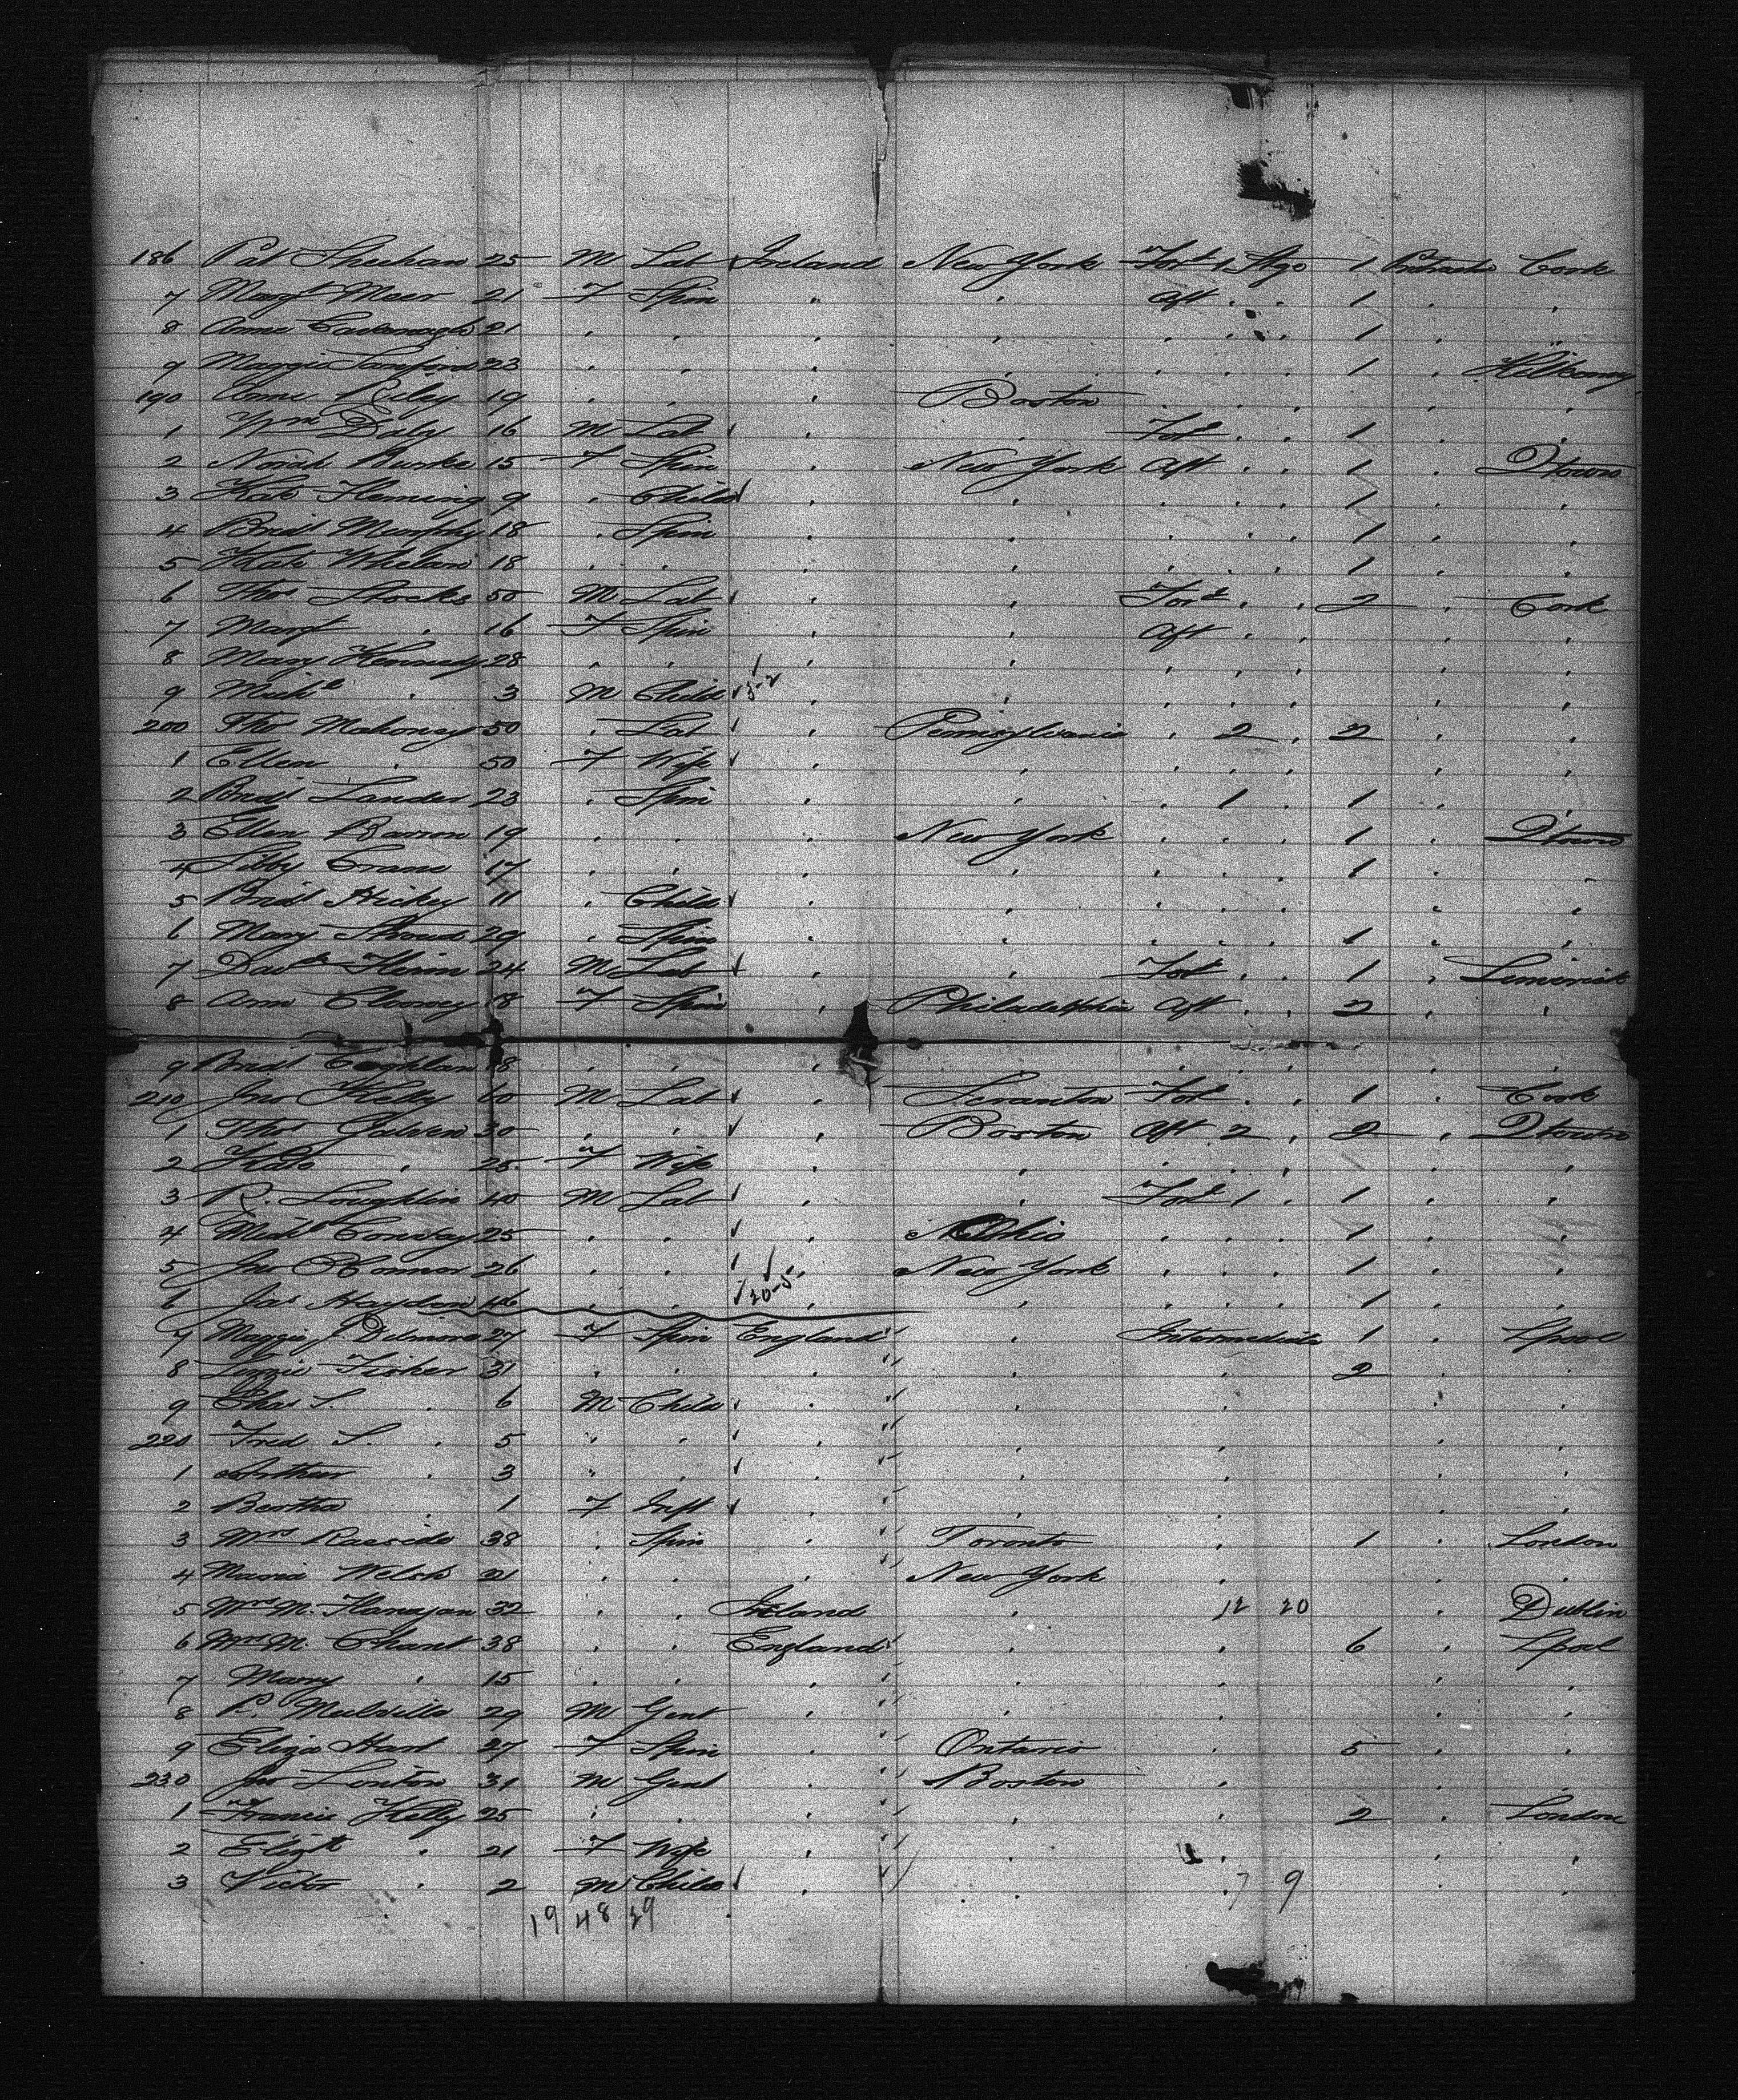 186 Pat Sheehan 25 M Lab Ireland New York For'd 1 Stge 1 Protracted Cork
7 Margt Meer 21 F Spin , , Aft , , 1 , ,
8 Anne Cavanagh 21 , , , , , , , 1 , ,,
9 Maggie Sanford 23 , , , , , , 1 , Kilkenny
190 Anne Riley 19 , , , Boston , , , , , ,
1 Wm Daly 16 M Lab , , For'd , , 1 , ,
2 Norah Burke 15 F Spin , New York Aft , , 1 , Qtown
3 Kate Fleming 9 , Child , , , , , 1 , ,
4 Bridt Murphy 18 , Spin , , , , , 1 , ,
5 Kate Whelan 18 , , , , , , , 1 , ,
6 Thos Stocks 50 M Lab , , For'd , , 2 , Cork
7 Margt , 16 F Spin , , Aft , , , ,
8 Mary Kennedy 28 , , , , , , , , ,
9 Michl , 3 M Child 3-2 , , , , , , ,
200 Thos Mahoney 50 , Lab , Pennsylvania , 2 , 2 , ,
1 Ellen , 50 F Wife , , , , , , ,
2 Bridt Lander 23 , Spin , , , 1 , 1 , ,
3 Ellen Barron 19 , , , New York , , , 1 , Qtown
4 Crane 17 , , , , , , , 1 , ,
5 Bridt Hickey 11 , Child , , , , , , ,
6 Mary Stroud 29 , Spin , , , , , 1 , ,
7 Davd 24 M Lab , , For'd , , 1 , Limerick
8 Ann Clooney 18 F Spin , Philadelphia Aft , , 2 , ,
9 Bridt Coghlan 18 , , , , , , , ,
210 Jno Kelly 60 M Lab , Scranton For'd , , 1 , Cork
1 Thos Galven 30 , , , Boston Aft 2 , 2 , Qtown
2 Kate , 25 F Wife , , , , , , ,
3 R. Loughlin 40 M Lab , , For'd 1 , 1 , ,
4 Michl Conway 25 , , , Ohio , , , 1 , ,
5 Jno O'Connor 26 , , , New York , , , 1 , ,
6 Jas Haydon 46 , , 20-5 , , , , , 1 , ,
7 Maggie J. Dilmore 27 F Spin England , Intermediate 1 , Lpool
8 Lizzie Fisher 31 , , , , , 2 , ,
9 Chas S. , 6 M Child , , , , ,
220 Fred S. , 5 , , , , , , ,
1 Arthur , 3 , , , , , , ,
2 Bertha , 1 F Inft , , , , ,
3 Mrs 38 , Spin , Toronto , 1 , London
4 Maria Welsh 21 , , , New York , , ,
5 Mrs M. Flanagan 32 , , Ireland , 12 20 , Dublin
6 Mrs M. Chant 38 , , England , , 6 , Lpool
7 Mary , 15 , , , , , , ,
8 P. Mulville 29 M Gent , , , , ,
9 Eliza Hart 27 F Spin , Ontario , 5 , ,
230 Jno Lonton 31 M Gent , Boston , , ,
1 Francis Kelly 25 , , , , , 2 , London
2 Elizth , 21 F Wife , , , , ,
3 Victor , 2 M Child , , , 7 9 , ,
19 48 29